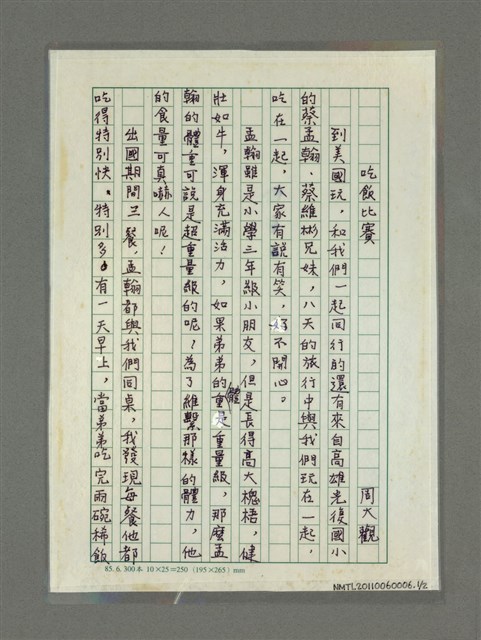 吃飯比賽
周大觀
到美國玩，和我們一起同行的還有來自高雄光復國小
的蔡孟翰、蔡維彬兄妹，八天的旅行中與我們玩在一起，
吃在一起，大家有說有笑，好不開心。
孟翰雖是小學三年級小朋友，但是長得高大槐梧，健
壯如牛，渾身充滿活力，如果弟弟的體重是重量級，那麼孟
翰的體重可說是超重量級的呢！為了維繫那樣的體力，他
的食量可真嚇人呢！
出國期間三餐，孟翰都與我們同桌，我發現每餐他都
吃得特別快、特別多。有一天早上，當弟弟吃完兩碗稀飯
85.6.300本10×25=250（195×265）mm
NMTL20110060006.1/2